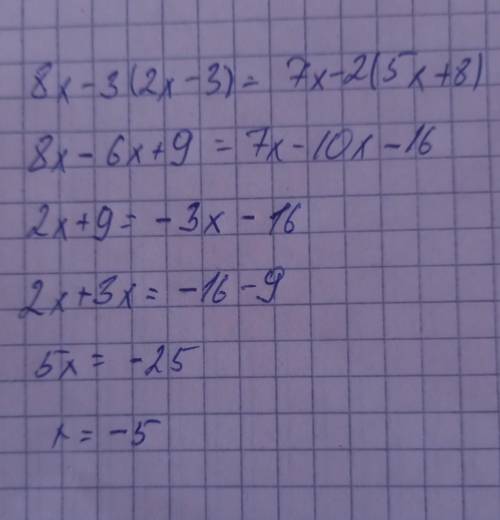 8x-3(2x-3)= 7x-2(5x+8)
8x-6x+9=7x-10x-16
2x+9=-3x-16
2x+3x=-16-9
5x=-25
x=-5